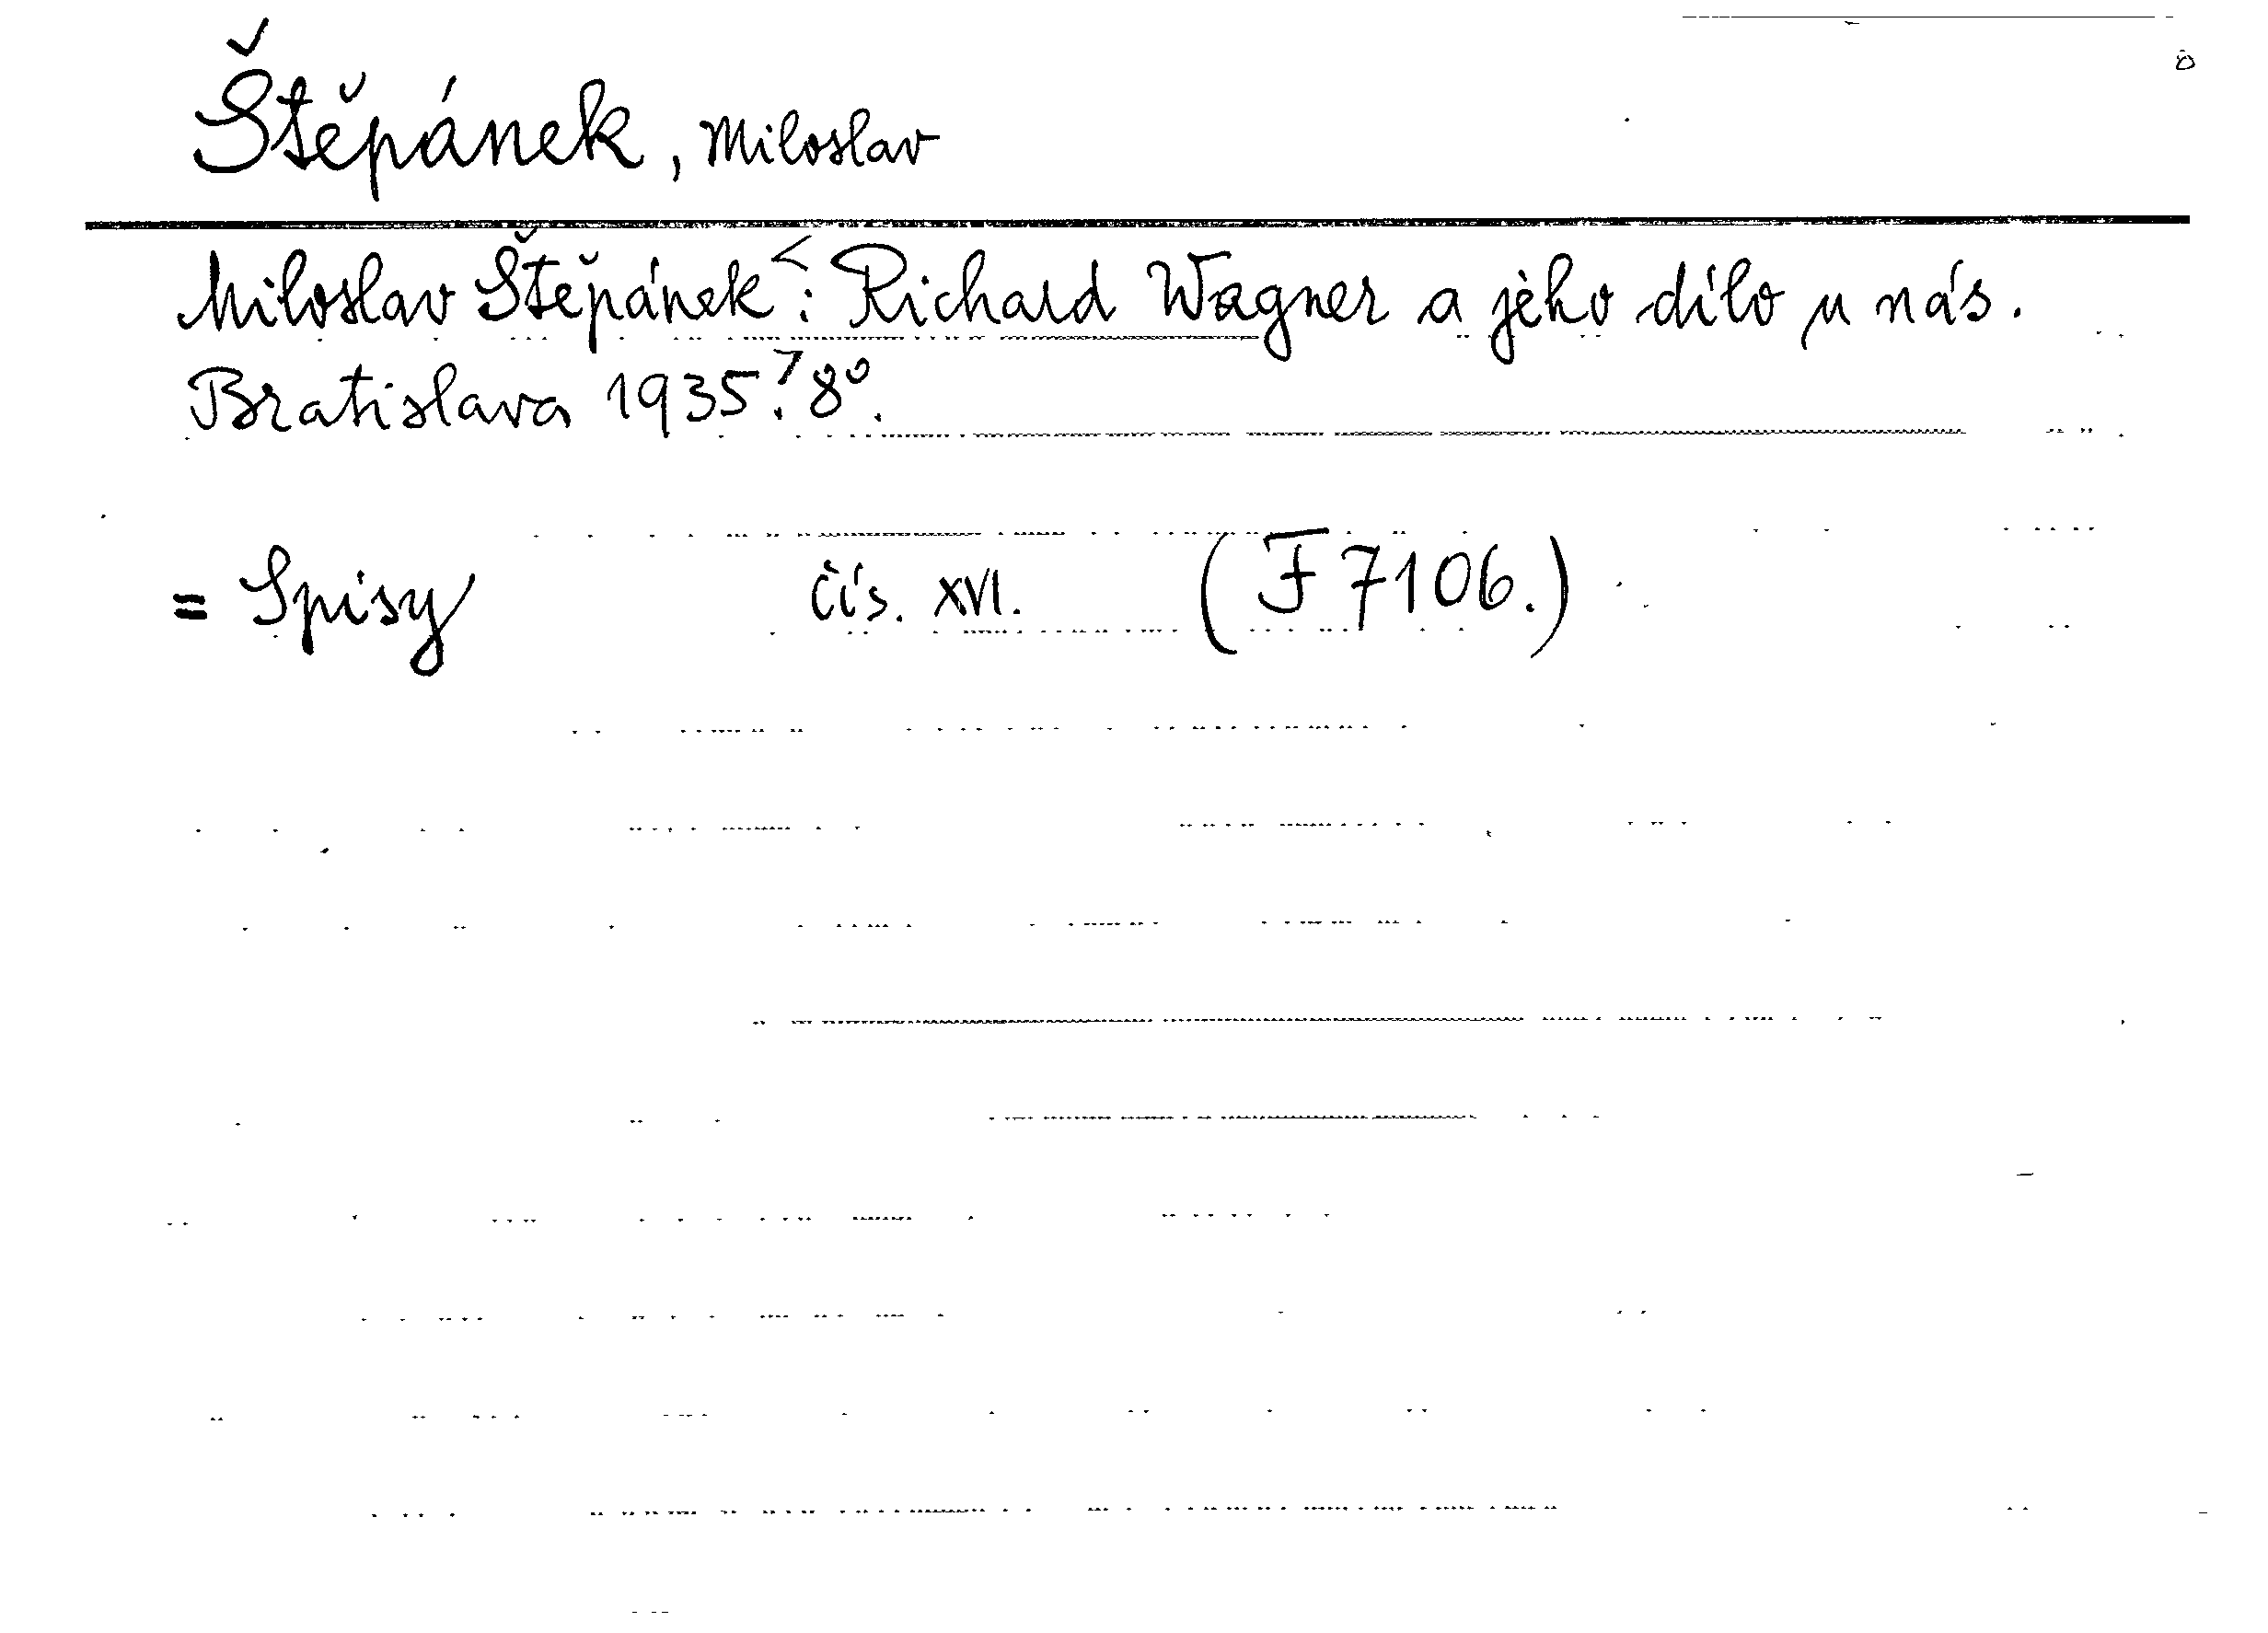 Štěpánek, Miloslav
Miloslav Štěpánek<: Richard Wagner a jeho dílo u nás.
Bratislava 1935.> 8°.
= Spisy čís. XVI. (F 7106.)